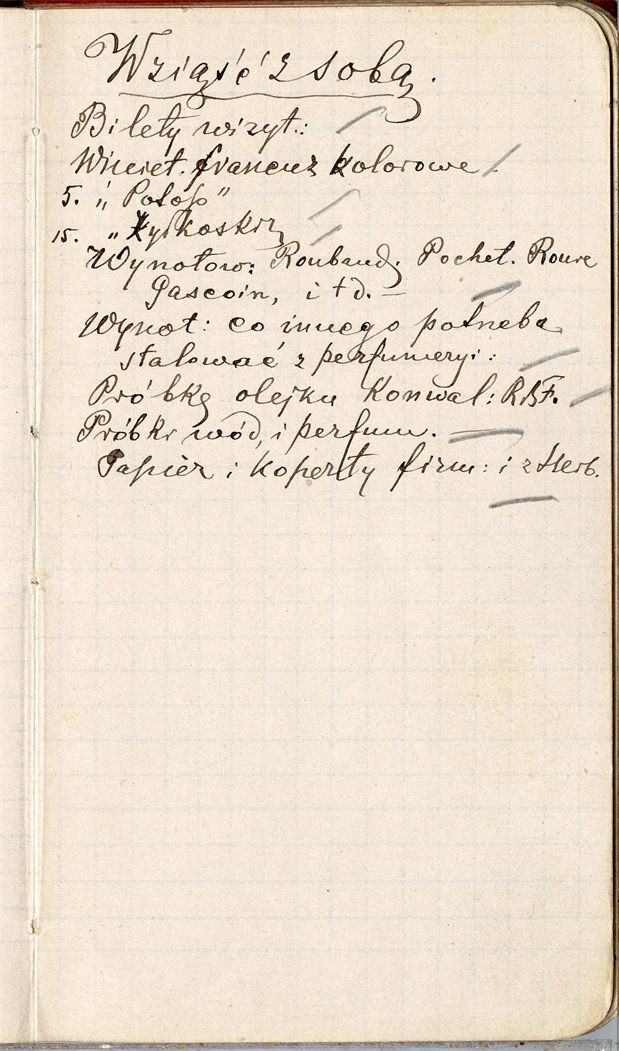 Wziąść z sobą.
Bilety wizyt.:
Winiet. francuz kolorowe
5. „
15. „
Wynotow: Roubaud, Pochet. Roure
Gascoin, i t d. —
Wynot: co innego potrzeba
stalować z perfumeryi:
Próbkę olejku Konwal: RBF.
Próbki wód, i perfum.
Papier i koperty firm: i z Herb.